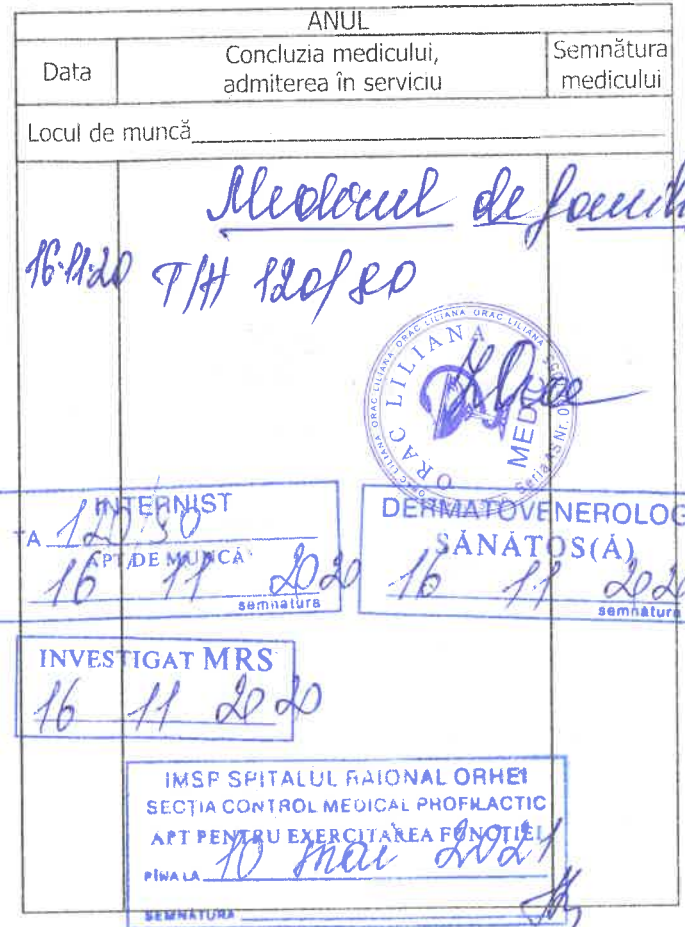 ANUL
Data
Concluzia medicului,
admiterea în serviciu
Semnătura
medicului
Locul de muncă
Medicul de famili
16.11.20 T/A 120/80
ORAC LILIANA
MEDIC
Seria AS Nr. 0
INTERNIST
TA 120/80
APT DE MUNCĂ
16 11 2020
semnătura
DERMATOVENEROLOG
SĂNĂTOS(Ă)
16 11 202
semnătura
INVESTIGAT MRS
16 11 2020
IMSP SPITALUL RAIONAL ORHEI
SECȚIA CONTROL MEDICAL PROFILACTIC
APT PENTRU EXERCITAREA FUNCȚIEI
PÎNA LA 10 mai 2021
SEMNĂTURA